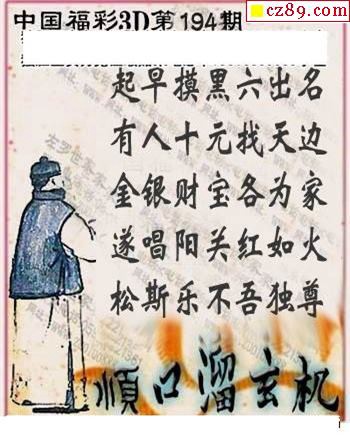 cz89.com
中国福彩3D第194期
起早摸黑六出名
有人十元找天边
金银财宝各为家
遂唱阳关红如火
松斯乐不吾独尊
顺口溜玄机